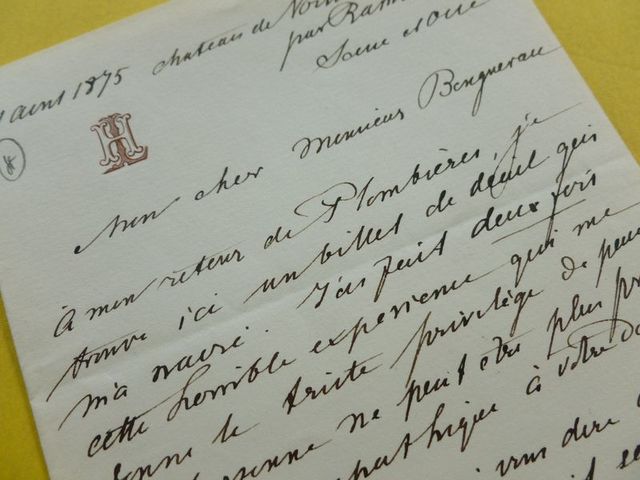 1875 chateau de Noi
par Ram
Seine et Oise
H
Mon cher Monsieur Bouguereau
À mon retour de Plombières, je
trouve ici un billet de deuil qui
m'a navré. J'ai fait deux fois
cette horrible expérience qui me
donne le triste privilège de pou
personne ne peut être plus pr
pathique à votre do
vous dire